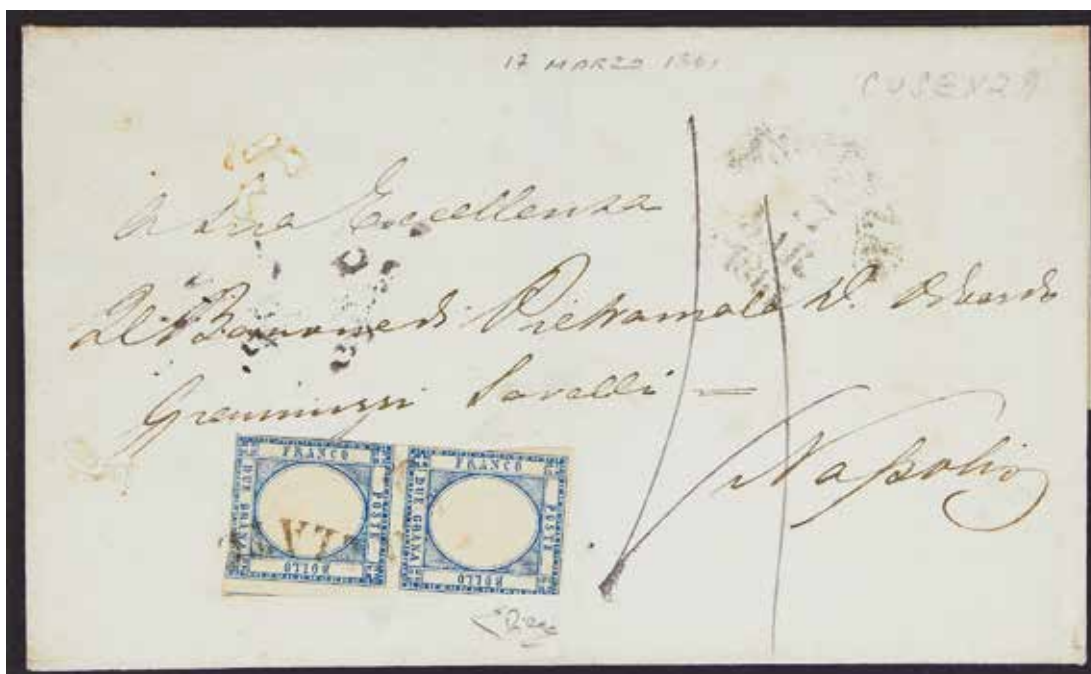 17 MARZO 1861
COSENZA
A Sua Eccellenza
Al Barone di Pietramala D. Eduardo
Savelli =
Napoli
FRANCO
DUE GRANA
POSTE
BOLLO
FRANCO
DUE GRANA
POSTE
BOLLO